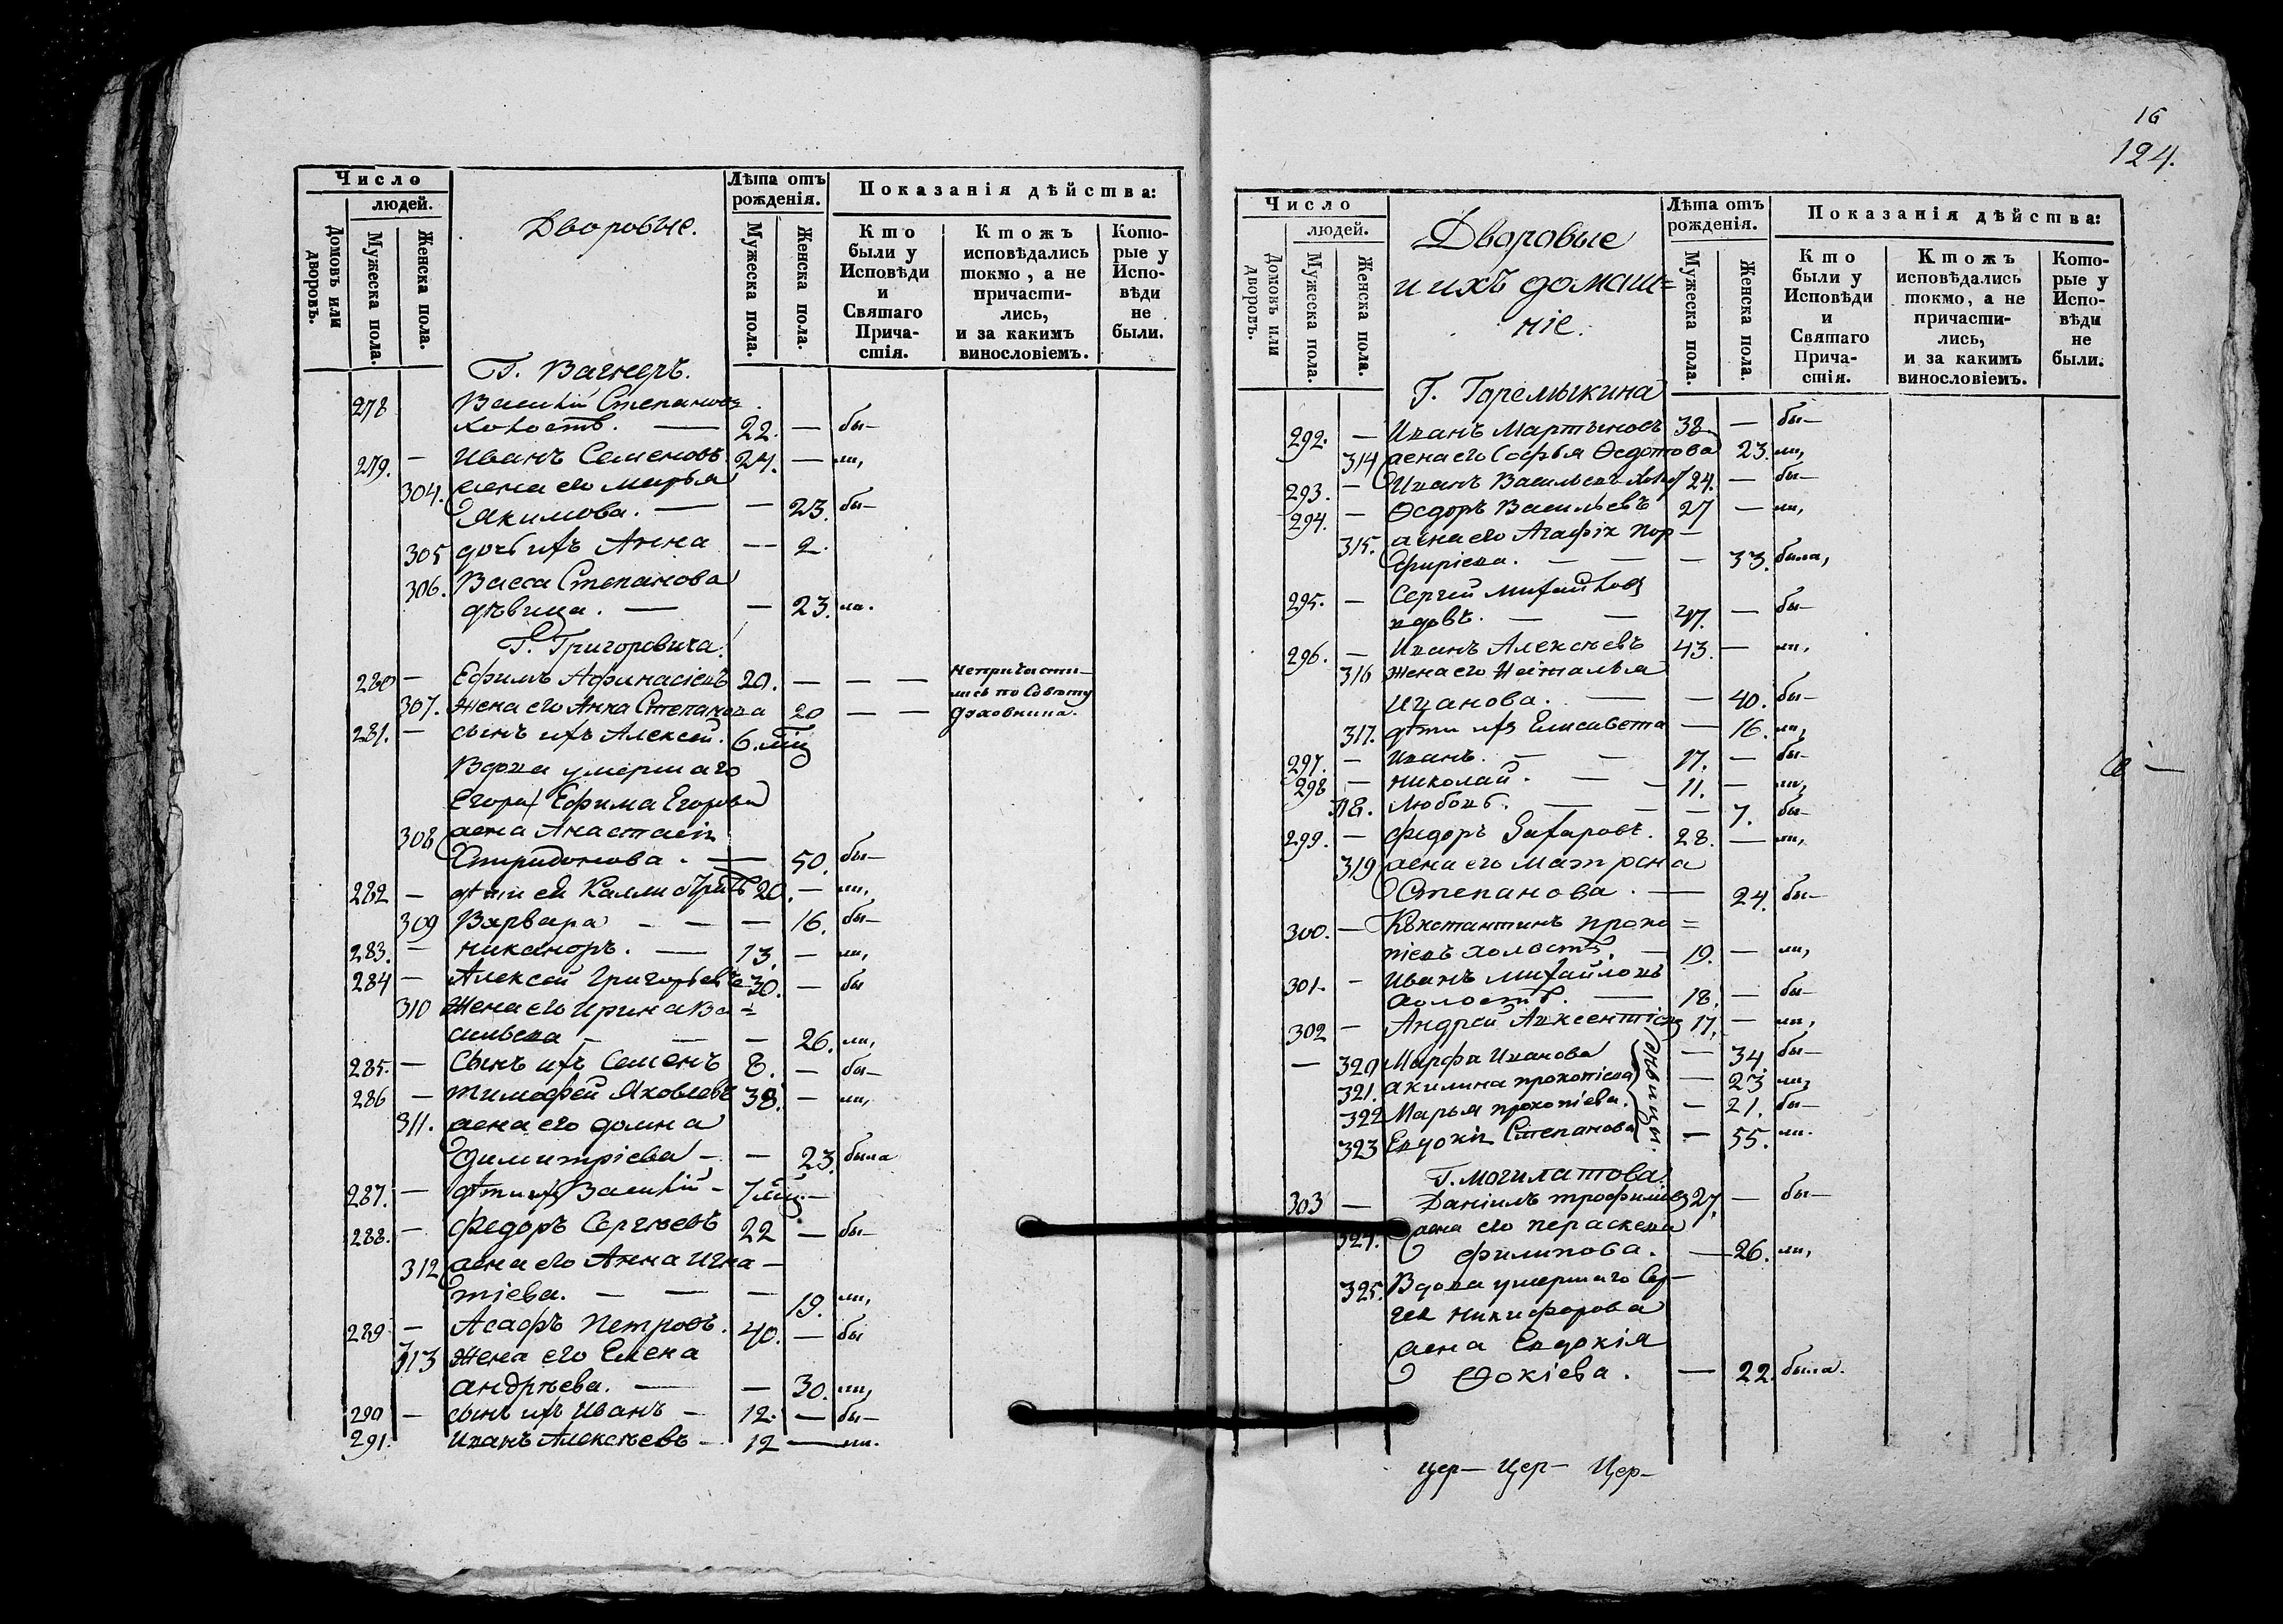 Число
людей.
Домовъ или дворовъ.
Мужеска пола.
Женска пола.
Дворовые.
Лѣта отъ рожденія.
Мужеска пола.
Женска пола.
Показанія дѣйства:
Кто были у Исповѣди и Святаго Причастія.
Ктожъ исповѣдались токмо, а не причастились, и за какимъ винословіемъ.
Которые у Исповѣди не были.
Г. Вагнеръ.
278 Василій Степановъ
холостъ. — 22. — бы—
279. — Иванъ Семеновъ 24. — ли,
304. жена его Марья
Якимова. — — 23. бы—
305 дочь ихъ Анна — 2.
306. Васса Степанова
дѣвица. — — 23 ла.
Г. Григоровича.
280 — Ефимъ Афанасіевъ 20. — — — непричасти-
лись по совѣту
307. жена его Анна Степанова 20 — — духовника.
281. — сынъ ихъ Алексей. 6. мѣц
Вдова умершаго
Егора Ефима Егорова
308 жена Анастасія
Спиридонова. — 50. бы—
282 — дѣти ей Каллистратъ 20. — ли,
309 Варвара — — — 16. бы—
283. — Никаноръ. — 13. — ли,
284 — Алексей Григорьевъ 30. — бы
310 жена его Ирина Ва=
сильева — — — 26. ли,
285. — Сынъ ихъ Семенъ 8. — бы—
286 — Тимофей Яковлевъ 38. — ли,
311. жена его Домна
Димитріева — — 23. была
287. — дѣти ихъ Василій — 7 мѣц. —
288. — Федоръ Сергѣевъ 22 — бы—
312 жена его Анна Игна—
тіева. — — — 19. ли,
289 — Асафъ Петровъ. 40. — бы
313 жена его Елена
Андрѣева. — — 30. ли,
290 — сынъ ихъ Иванъ — 12. — бы—
291. Иванъ Алексѣевъ — 12 — ли.
16
124.
Число
людей.
Домовъ или дворовъ.
Мужеска пола.
Женска пола.
Дворовые
и ихъ домаш=
ніе.
Лѣта отъ рожденія.
Мужеска пола.
Женска пола.
Показанія дѣйства:
Кто были у Исповѣди и Святаго Причастія.
Ктожъ исповѣдались токмо, а не причастились, и за какимъ винословіемъ.
Которые у Исповѣди не были.
Г. Горемыкина
292. — Иванъ Мартыновъ 38 — бы—
314 жена его Софья Ѳедотова 23. ли,
293. — Иванъ Васильевъ хол 24. — бы—
294. — Ѳедоръ Васильевъ 27 — ли,
315. жена его Агафія Пор—
фиріева. — — — 33. была,
295. — Сергей Михайловъ
вдовъ. — — 47. — бы—
296. — Иванъ Алексѣевъ 43. — ли,
316 жена его Наталья
Иванова. — — 40. бы—
317. дѣти ихъ Елисавета — 16. ли,
297. — Иванъ. — — 17. — бы—
298 — Николай. — — 11. — ли,
318. Любовь. — — 7. бы—
299. — Федоръ Захаровъ. 28. — ли,
319 жена его Матрона
Степанова. — 24. бы—
300. — Константинъ Проко=
піевъ холостъ. — 19. — ли,
301. — Иванъ Михайловъ
холостъ. — 18. — бы—
302 — Андрей Авксентіевъ 17. — ли,
— 320 Марфа Иванова — 34. бы—
321. Акилина Прокопіева — 23 ли,
322 Марья Прокопіева. — 21. бы—
323 Евдокія Степанова — 55. ли.
дѣвицы.
Г. Могилатова
303 — Даніилъ Трофимовъ 27. — бы—
324. жена его Параскева
Филипова. — 26. ли,
325. Вдова умершаго Сер—
гея Никифорова
жена Евдокія
Ѳокіева. — 22. была.
цер— Цер— Цер—